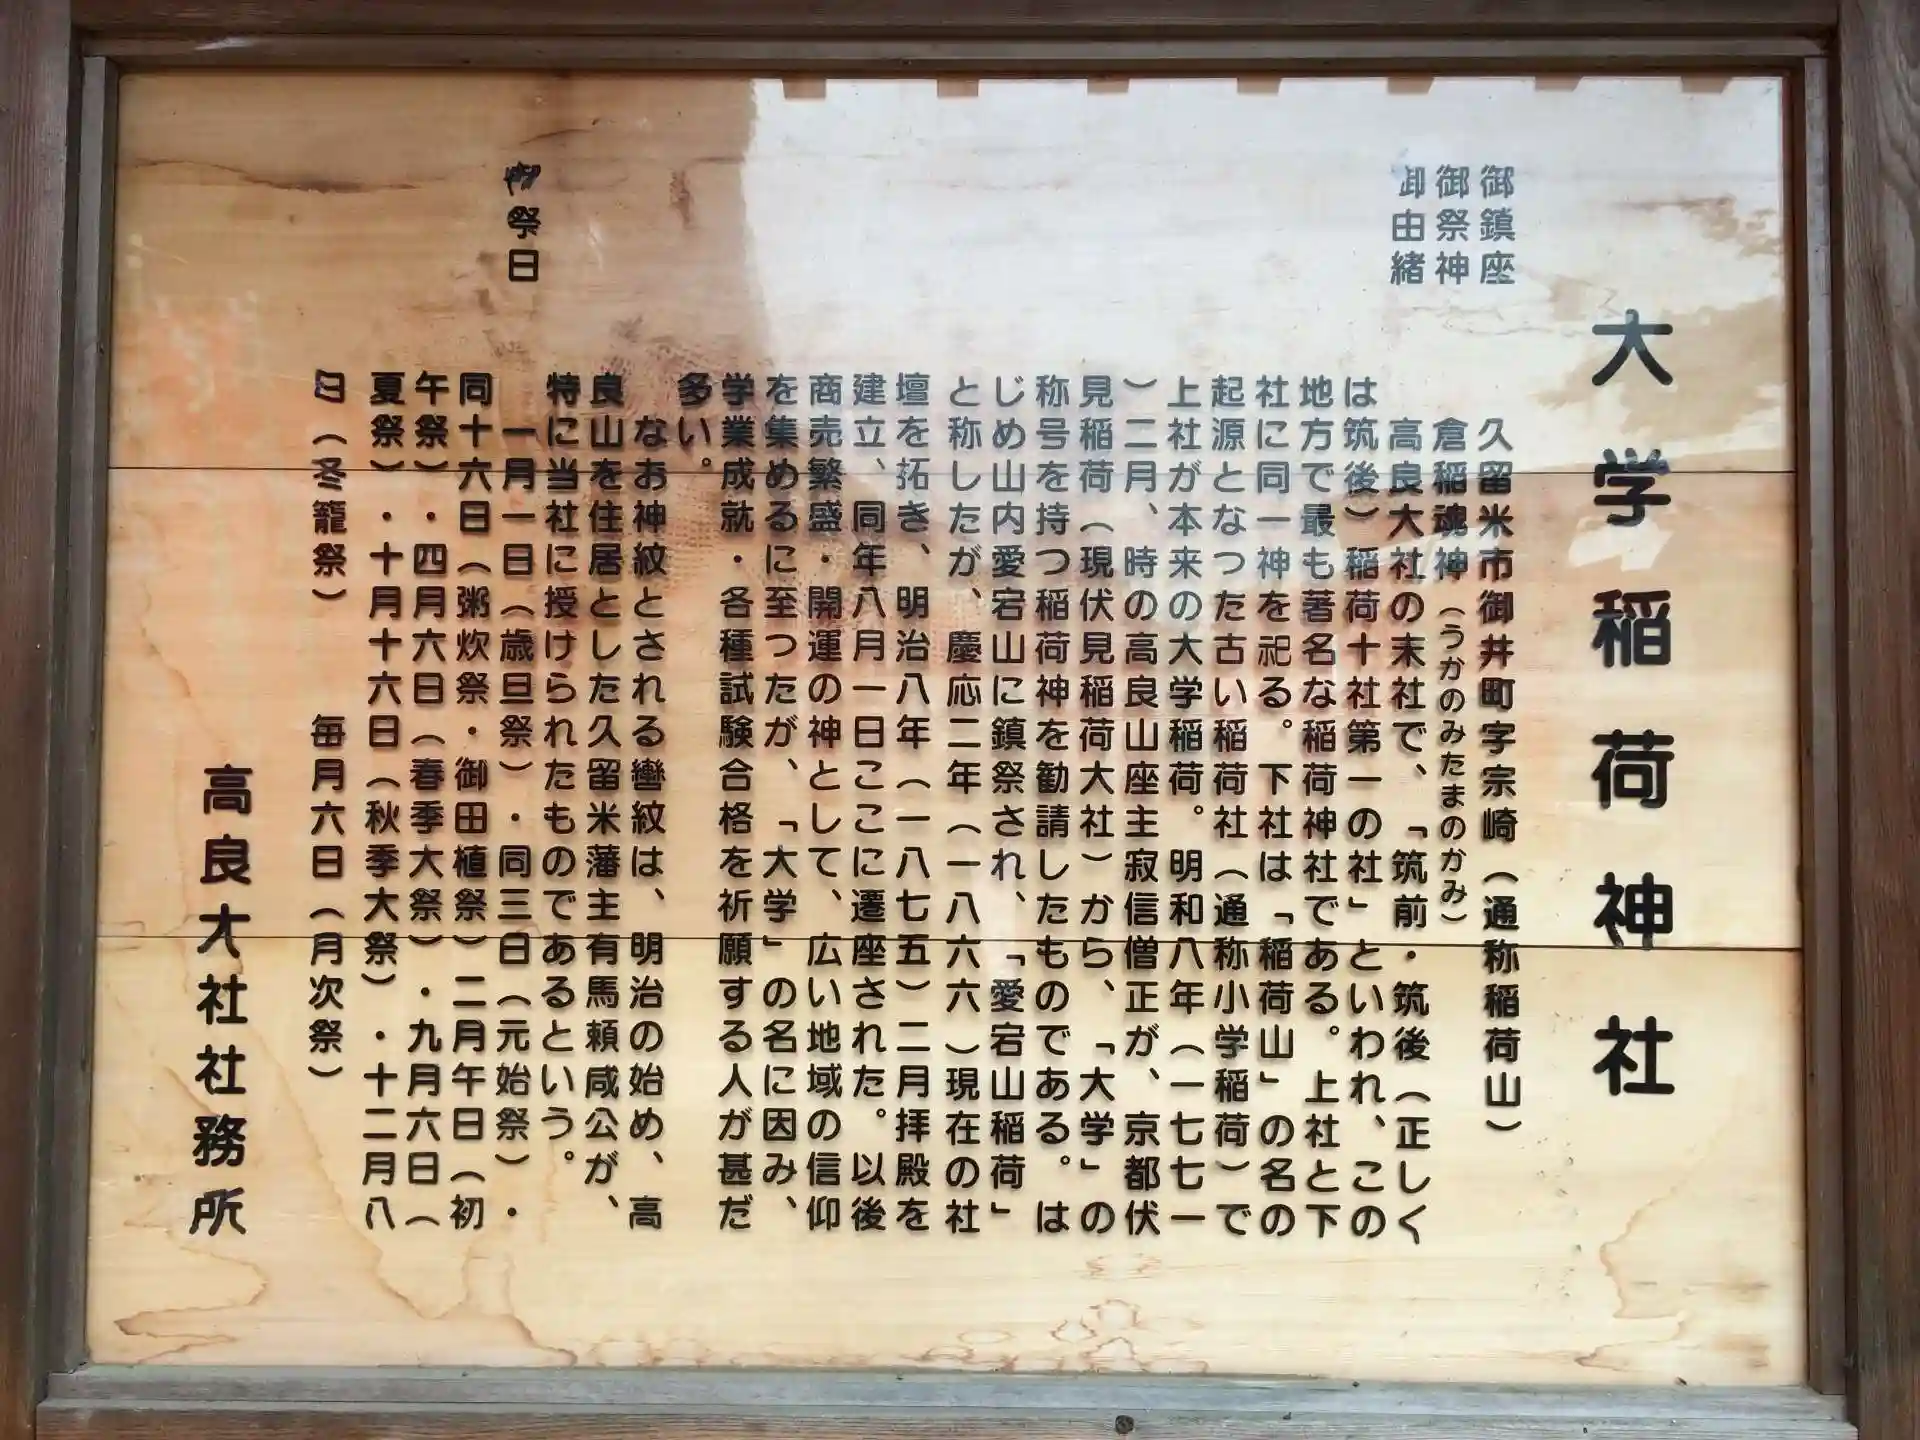 大学稲荷神社
御鎮座　久留米市御井町字宗崎（通称稲荷山）
御祭神　倉稲魂神（うかのみたまのかみ）
御由緒　高良大社の末社で、「筑前・筑後（正しく
は筑後）稲荷十社第一の社」といわれ、この
地方で最も著名な稲荷神社である。上社と下
社に同一神を祀る。下社は「稲荷山」の名の
起源となつた古い稲荷社（通称小学稲荷）で
上社が本来の大学稲荷。明和八年（一七七一
）二月、時の高良山座主寂信僧正が、京都伏
見稲荷（現伏見稲荷大社）から、「大学」の
称号を持つ稲荷神を勧請したものである。は
じめ山内愛宕山に鎮祭され、「愛宕山稲荷」
と称したが、慶応二年（一八六六）現在の社
壇を拓き、明治八年（一八七五）二月拝殿を
建立、同年八月一日ここに遷座された。以後
商売繁盛・開運の神として、広い地域の信仰
を集めるに至つたが、「大学」の名に因み、
学業成就・各種試験合格を祈願する人が甚だ
多い。
なお神紋とされる轡紋は、明治の始め、高
良山を住居とした久留米藩主有馬頼咸公が、
特に当社に授けられたものであるという。
御祭日　一月一日（歳旦祭）・同三日（元始祭）・
同十六日（粥炊祭・御田植祭）二月午日（初
午祭）・四月六日（春季大祭）・九月六日（
夏祭）・十月十六日（秋季大祭）・十二月八
日（冬籠祭）　毎月六日（月次祭）
高良大社社務所